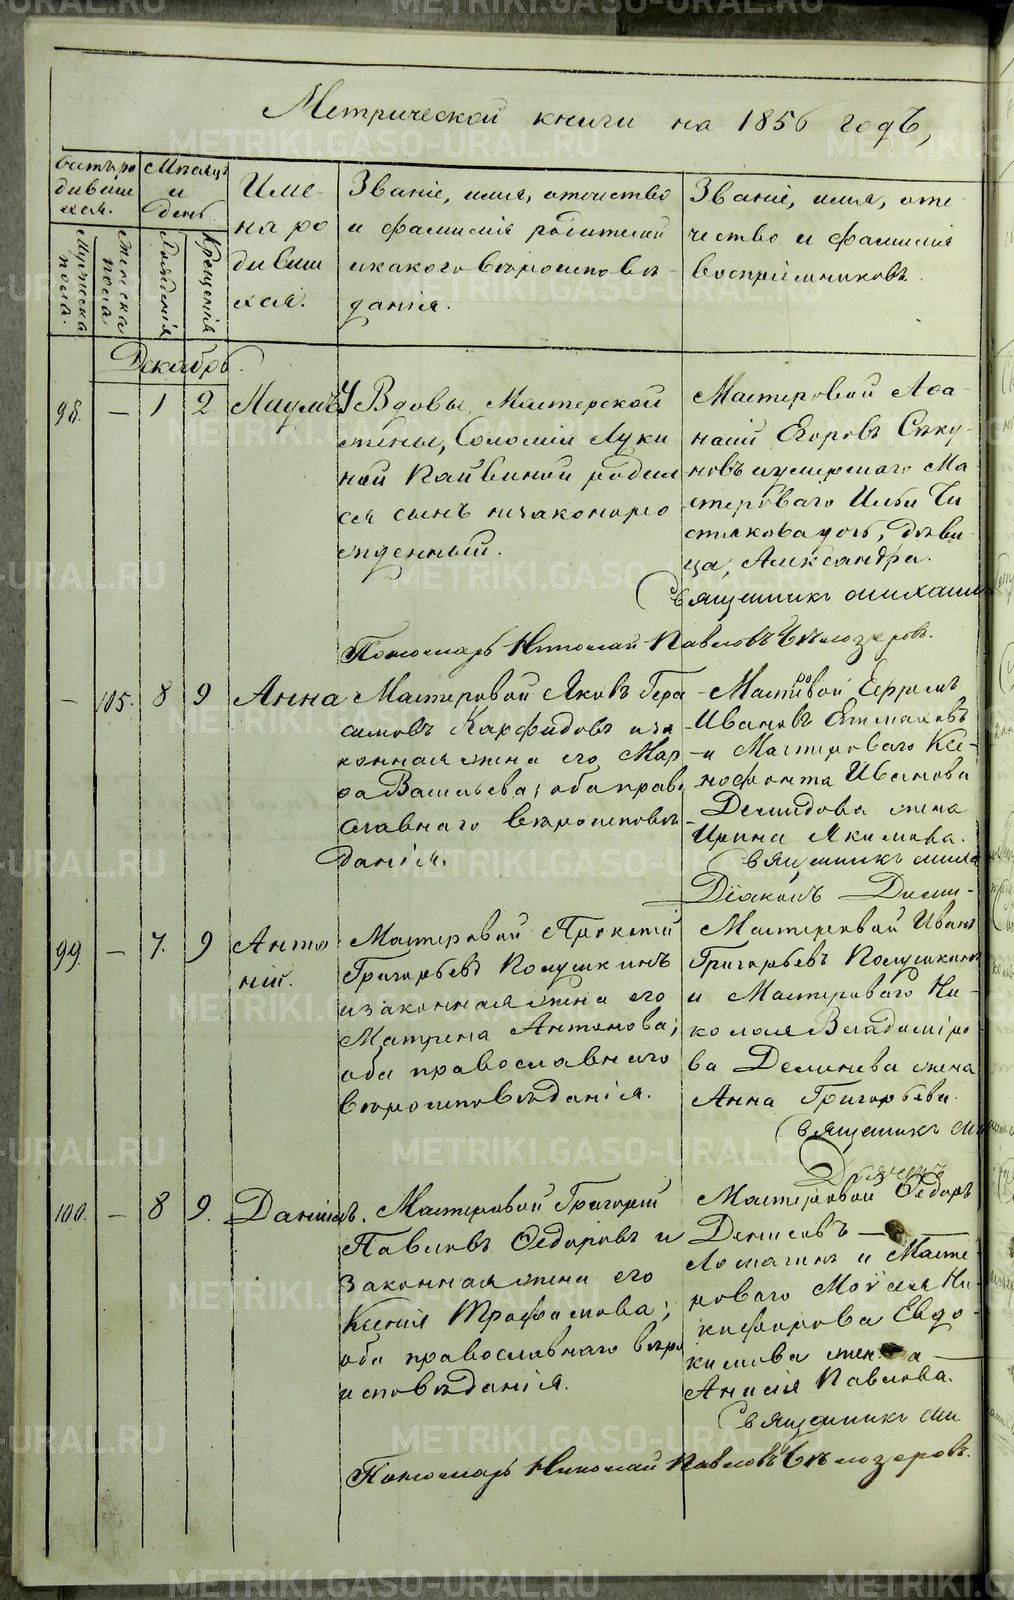 Метрической книги на 1856 годъ,
Счетъ ро
дивших
хся.
Мужеска
пола.
Женска
пола.
Мѣсяцъ
и
день.
Рожденія
Крещенія
Име-
на ро
дивших
хся.
Званіе, имя, отчество
и фамилія родителей
и какого вѣроисповѣ-
данія.
Званіе, имя, оте-
чество и фамилія
воспріемниковъ.
Декабрь.
98. — 1 2 Наумъ
У Вдовы, Мастерской
жены, Соломіи Луки
ной Пайвиной родил
ся сынъ незаконоро
жденный.
Мастеровой Аѳа-
насій Егоровъ Секу-
новъ и умершаго Ма-
стероваго Ильи Чи-
стякова дочь, дѣви-
ца, Александра.
Священникъ Михаил
Пономарь Николай Павловъ Бѣлозеровъ.
— 105. 8 9 Анна
Мастеровой Яковъ Гера
симовъ Карфидовъ и за
конная жена его Мар
ѳа Васильева; оба прав
славнаго вѣроисповѣ-
данія.
Мастеровой Ефремъ
Ивановъ Епимаховъ
и Мастероваго Ксе-
нофонта Иванова
Демидова жена
Ирина Якимова.
Священникъ Миха
Діаконъ Дими-
99. — 7. 9 Анто
ній.
Мастеровой Прокопій
Григорьевъ Полушкинъ
и законная жена его
Матрена Антонова;
оба православнаго
вѣроисповѣданія.
Мастеровой Иванъ
Григорьевъ Полушкинъ
и Мастероваго Ни-
колая Владиміро-
ва Деминева жена
Анна Григорьева.
Священникъ Ми
100. — 8 9. Даніилъ.
Мастеровой Григорій
Павловъ Ѳедоровъ и
законная жена его
Ксенія Трофимова;
оба православнаго вѣро
исповѣданія.
Мастеровой Ѳедоръ
Денисовъ —
Ломагинъ и Масте-
роваго Моѵсея Ни-
кифорова Евдо-
кимова жена —
Анисія Павлова.
Священникъ Ми
Пономарь Николай Павловъ Бѣлозеровъ.
METRIKI.GASO-URAL.RU